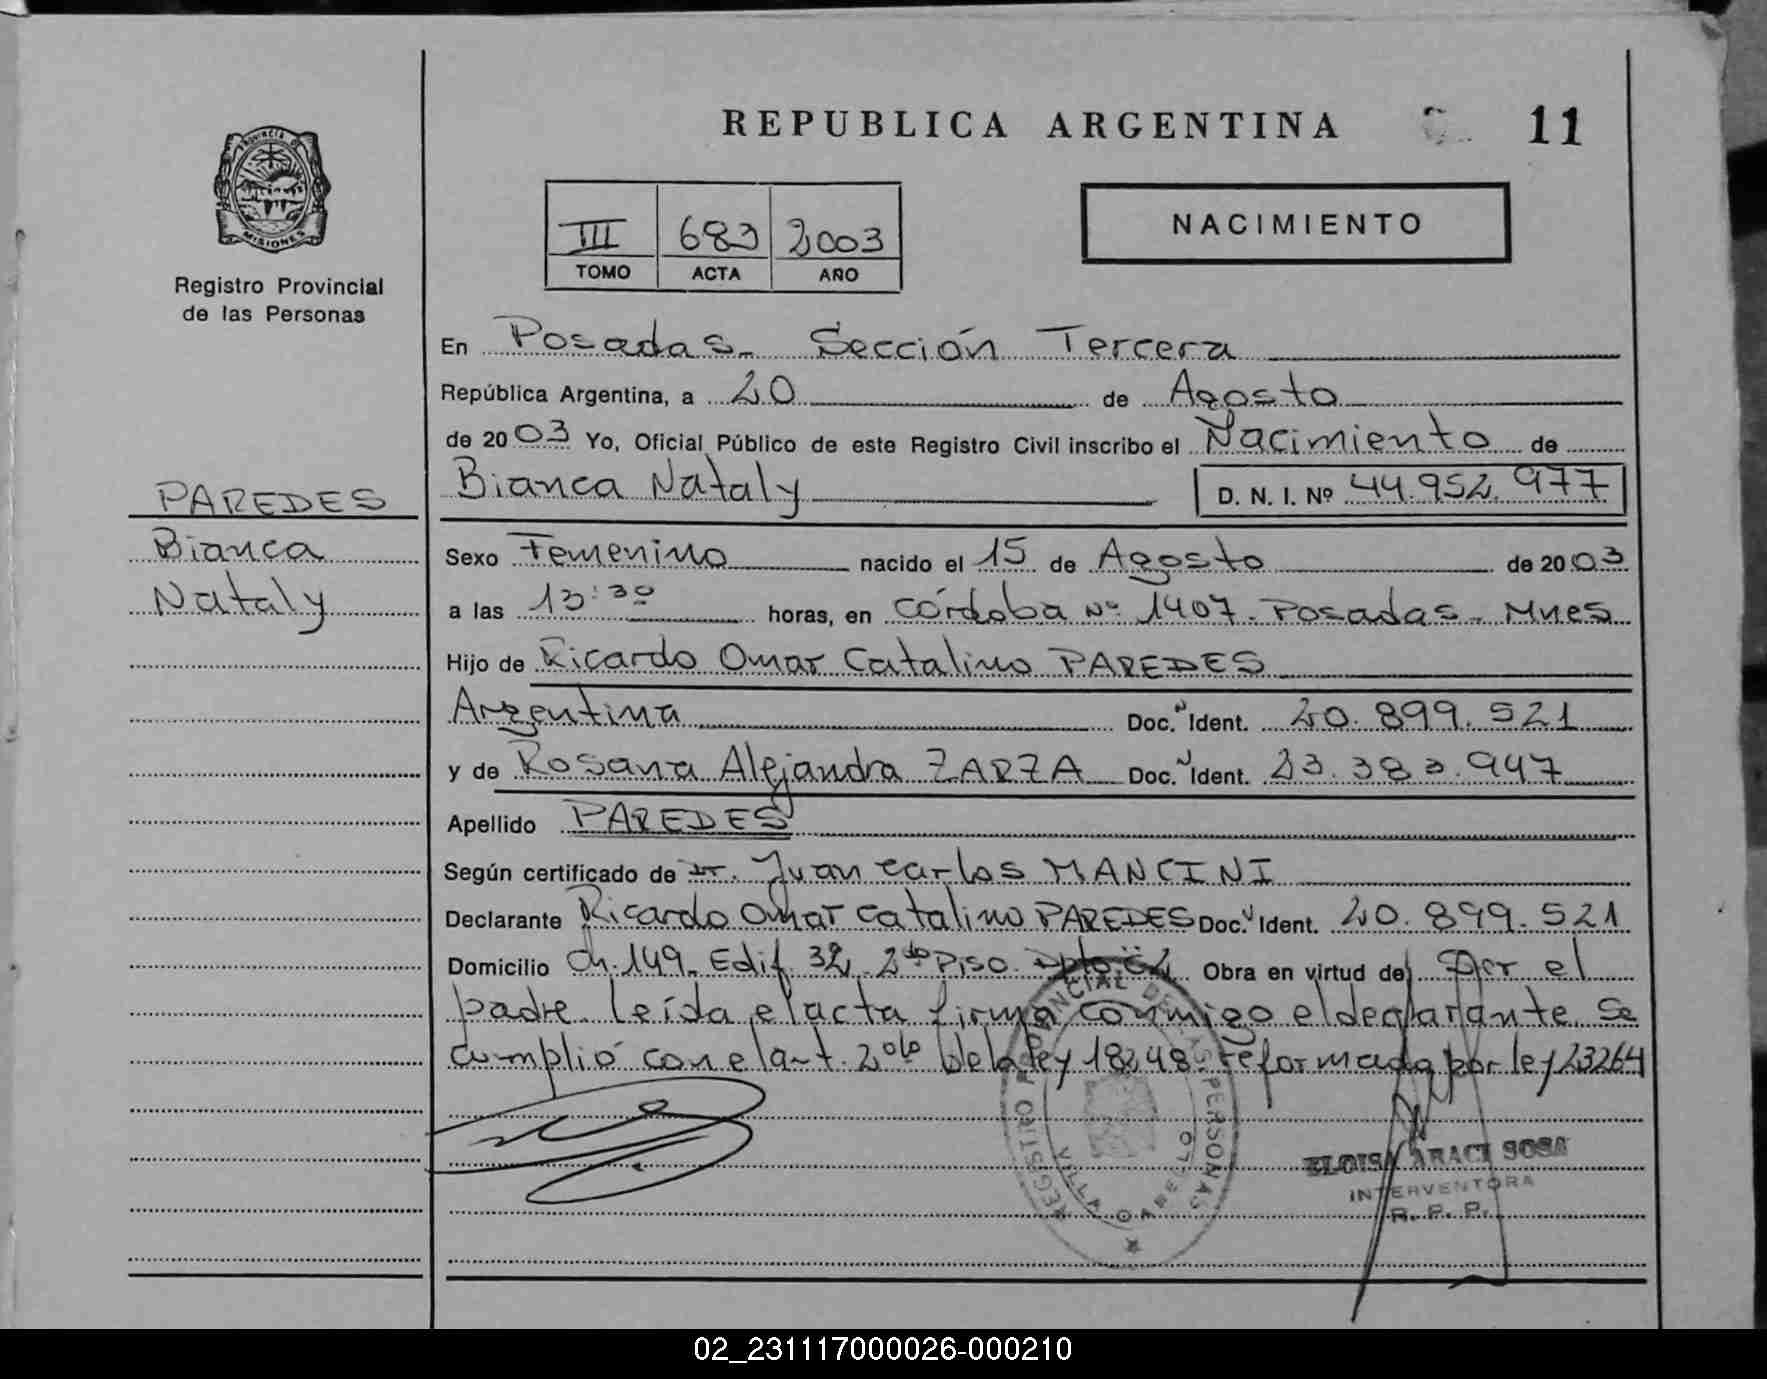 REPUBLICA ARGENTINA 11
PROVINCIA DE
MISIONES
Registro Provincial
de las Personas
III 683 2003
TOMO ACTA AÑO
NACIMIENTO
En Posadas - Sección Tercera
República Argentina, a 20 de Agosto
de 2003 Yo, Oficial Público de este Registro Civil inscribo el Nacimiento de
Bianca Nataly D. N. I. Nº 44.952.977
PAREDES
Bianca
Nataly
Sexo Femenino nacido el 15 de Agosto de 2003
a las 13:30 horas, en Córdoba Nº 1407 - Posadas - Mnes
Hijo de Ricardo Omar Catalino PAREDES
Argentina Doc. N Ident. 20.899.521
y de Rosana Alejandra ZARZA Doc. N Ident. 23.383.947
Apellido PAREDES
Según certificado de Dr. Juan Carlos MANCINI
Declarante Ricardo Omar Catalino PAREDES Doc. N Ident. 20.899.521
Domicilio Ch. 149 - Edif. 32 - 2do Piso - Dpto. Obra en virtud de Per el
padre leída el acta firma conmigo el declarante. Se
cumplió con el art. 2º de la ley 18248 reformada por ley 23264
REGISTRO PROVINCIAL DE LAS PERSONAS
VILLA CABELLO
ELOISA ARACI SOSA
INTERVENTORA
R. P. P.
02_231117000026-000210